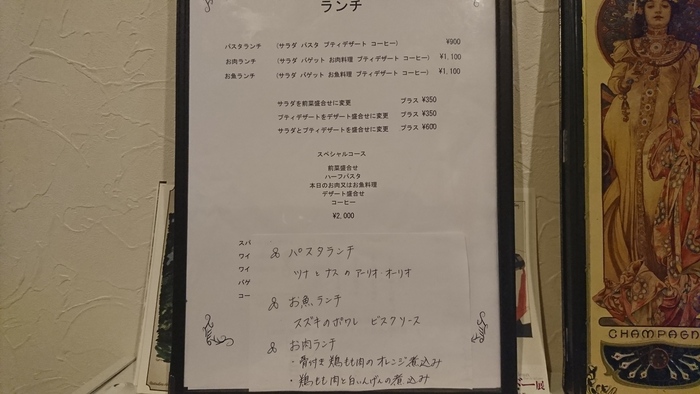 ランチ
パスタランチ (サラダ パスタ プティデザート コーヒー) ¥900
お肉ランチ (サラダ バゲット お肉料理 プティデザート コーヒー) ¥1,100
お魚ランチ (サラダ バゲット お魚料理 プティデザート コーヒー) ¥1,100
サラダを前菜盛合せに変更 プラス ¥350
プティデザートをデザート盛合せに変更 プラス ¥350
サラダとプティデザートを盛合せに変更 プラス ¥600
スペシャルコース
前菜盛合せ
ハーフパスタ
本日のお肉又はお魚料理
デザート盛合せ
コーヒー
¥2,000
スパ
ワイ
ワイ
バゲ
コー
パスタランチ
ツナとナスのアーリオ・オーリオ
お魚ランチ
スズキのポワレ ビスクソース
お肉ランチ
・骨付き鶏もも肉のオレンジ煮込み
・鶏もも肉と白いんげんの煮込み
CHAMPAGN
展